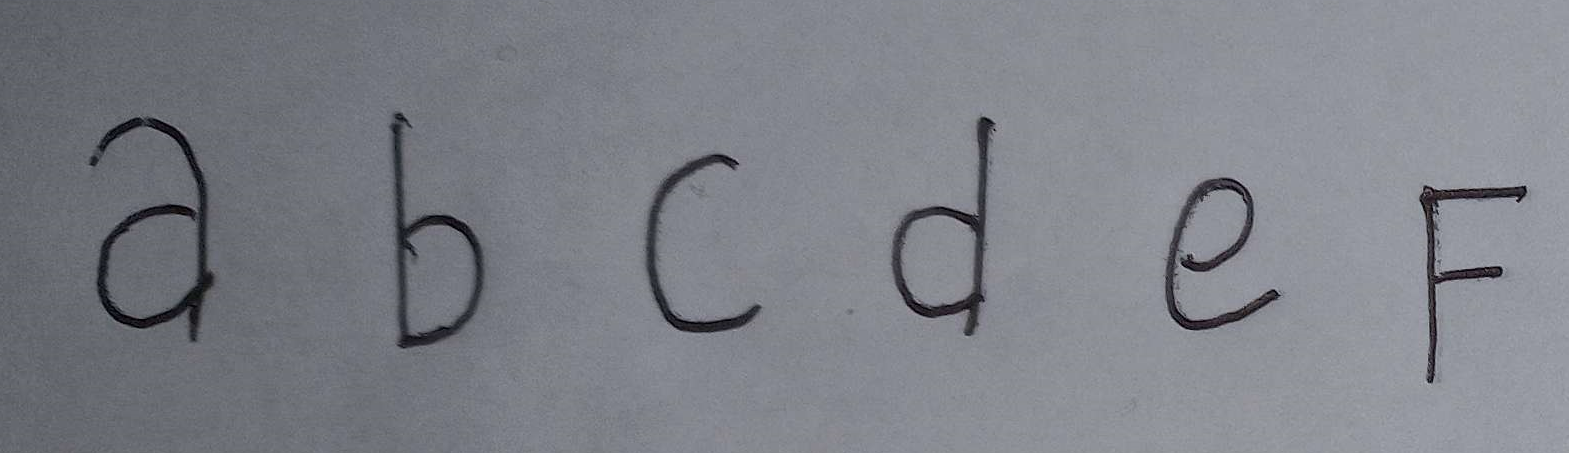 a b c d e F